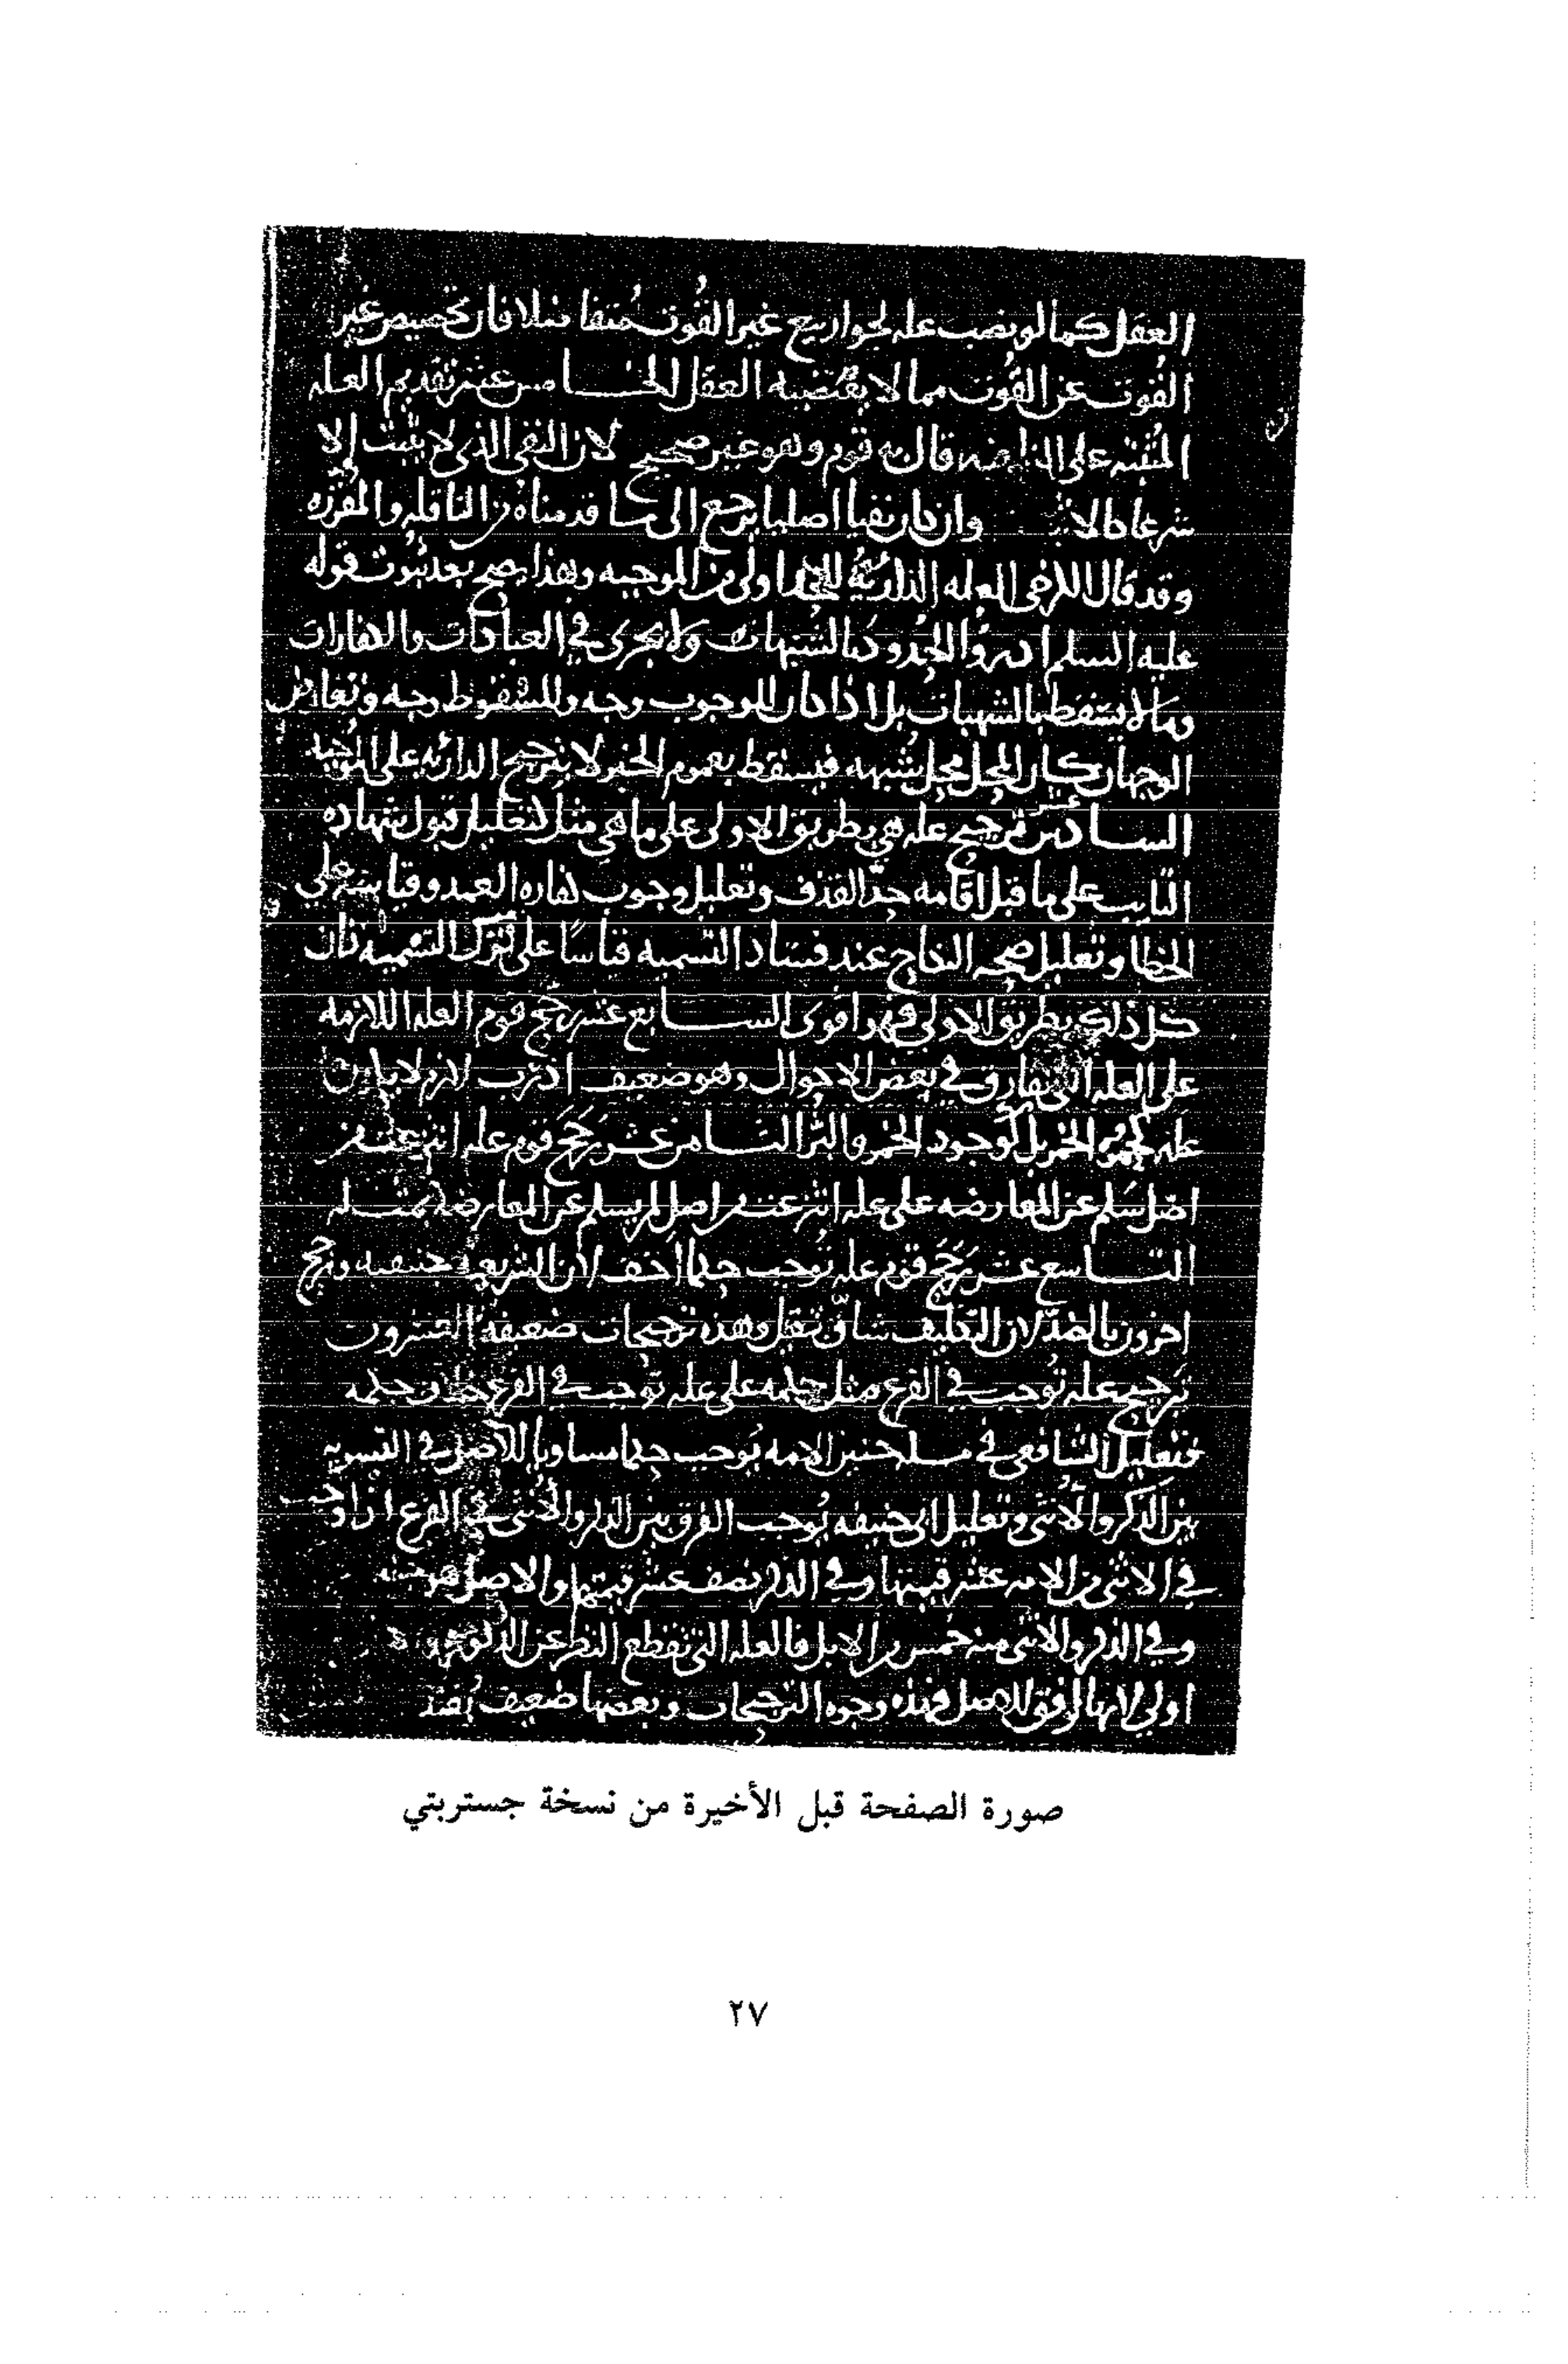 العقل كما لو نصب عله لجواز بيع غير القوت متفاضلا فان تخصيص غير
القوت عن القوت مما لا يقتضيه العقل الخامس عشر تقديم العله
المثبته على النافيه قال به قوم وهو غير صحيح لان النفى الذى لا يثبت الا
شرعا كالاثبات وان كان نفيا اصليا يرجع الى ما قدمناه من الناقله والمقرره
وقد قال الكرخى العله الدارئة للحد اولى من الموجبه وهذا يصح بعد ثبوت قوله
عليه السلم ادرؤا الحدود بالشبهات ولا يجرى في العبادات والكفارات
وما لا يسقط بالشبهات بل اذا كان للوجوب وجه وللسقوط وجه وتعارض
الوجهان كان المحل محل شبهه فيسقط بعموم الخبر لا بترجيح الدارئه على الموجبه
السادس ترجيح عله هي بطريق الاولى على ما هي مثل كتعليل قبول شهاده
التايب على ما قبل اقامه حد القذف وتعليل وجوب كفاره العمد وقياسه على
الخطا وتعليل صحه النكاح عند فساد التسميه قياسا على ترك التسميه فان
كل ذلك بطريق الاولى فهو اقوى السابع عشر رجح قوم العله اللازمه
على العله التى تفارق في بعض الاحوال وهو ضعيف اذ رب لازم لا يكون
عله كحمره الخمر بل كوجود الخمر والبر الثامن عشر رجح قوم عله انتزعت من
اصل سلم عن المعارضه على عله انتزعت من اصل لم يسلم عن المعارضه بمثله
التاسع عشر رجح قوم عله توجب حكما اخف لان الشريعه حنيفيه ورجح
اخرون بالضد لان التكليف شاق ثقيل وهذه ترجيحات ضعيفة العشرون
ترجيح عله توجب في الفرع مثل حكمه على عله توجب في الفرع خلاف حكمه
فتعليل الشافعى في مسله جنين الامه يوجب حكما مساويا للاصل في التسويه
بين الذكر والانثى وتعليل ابى حنيفه يوجب الفرق بين الذكر والانثى في الفرع اذ اوجب
في الانثى من الامه عشر قيمتها وفي الذكر نصف عشر قيمتها والاصل هو جنين
وفي الذكر والانثى منه خمس من الابل فالعله التى تقطع النظر عن الذكوره
اولى لانها اوفق للاصل فهذه وجوه الترجيحات وبعضها ضعيف يفيد
صورة الصفحة قبل الأخيرة من نسخة جستربتي
٢٧